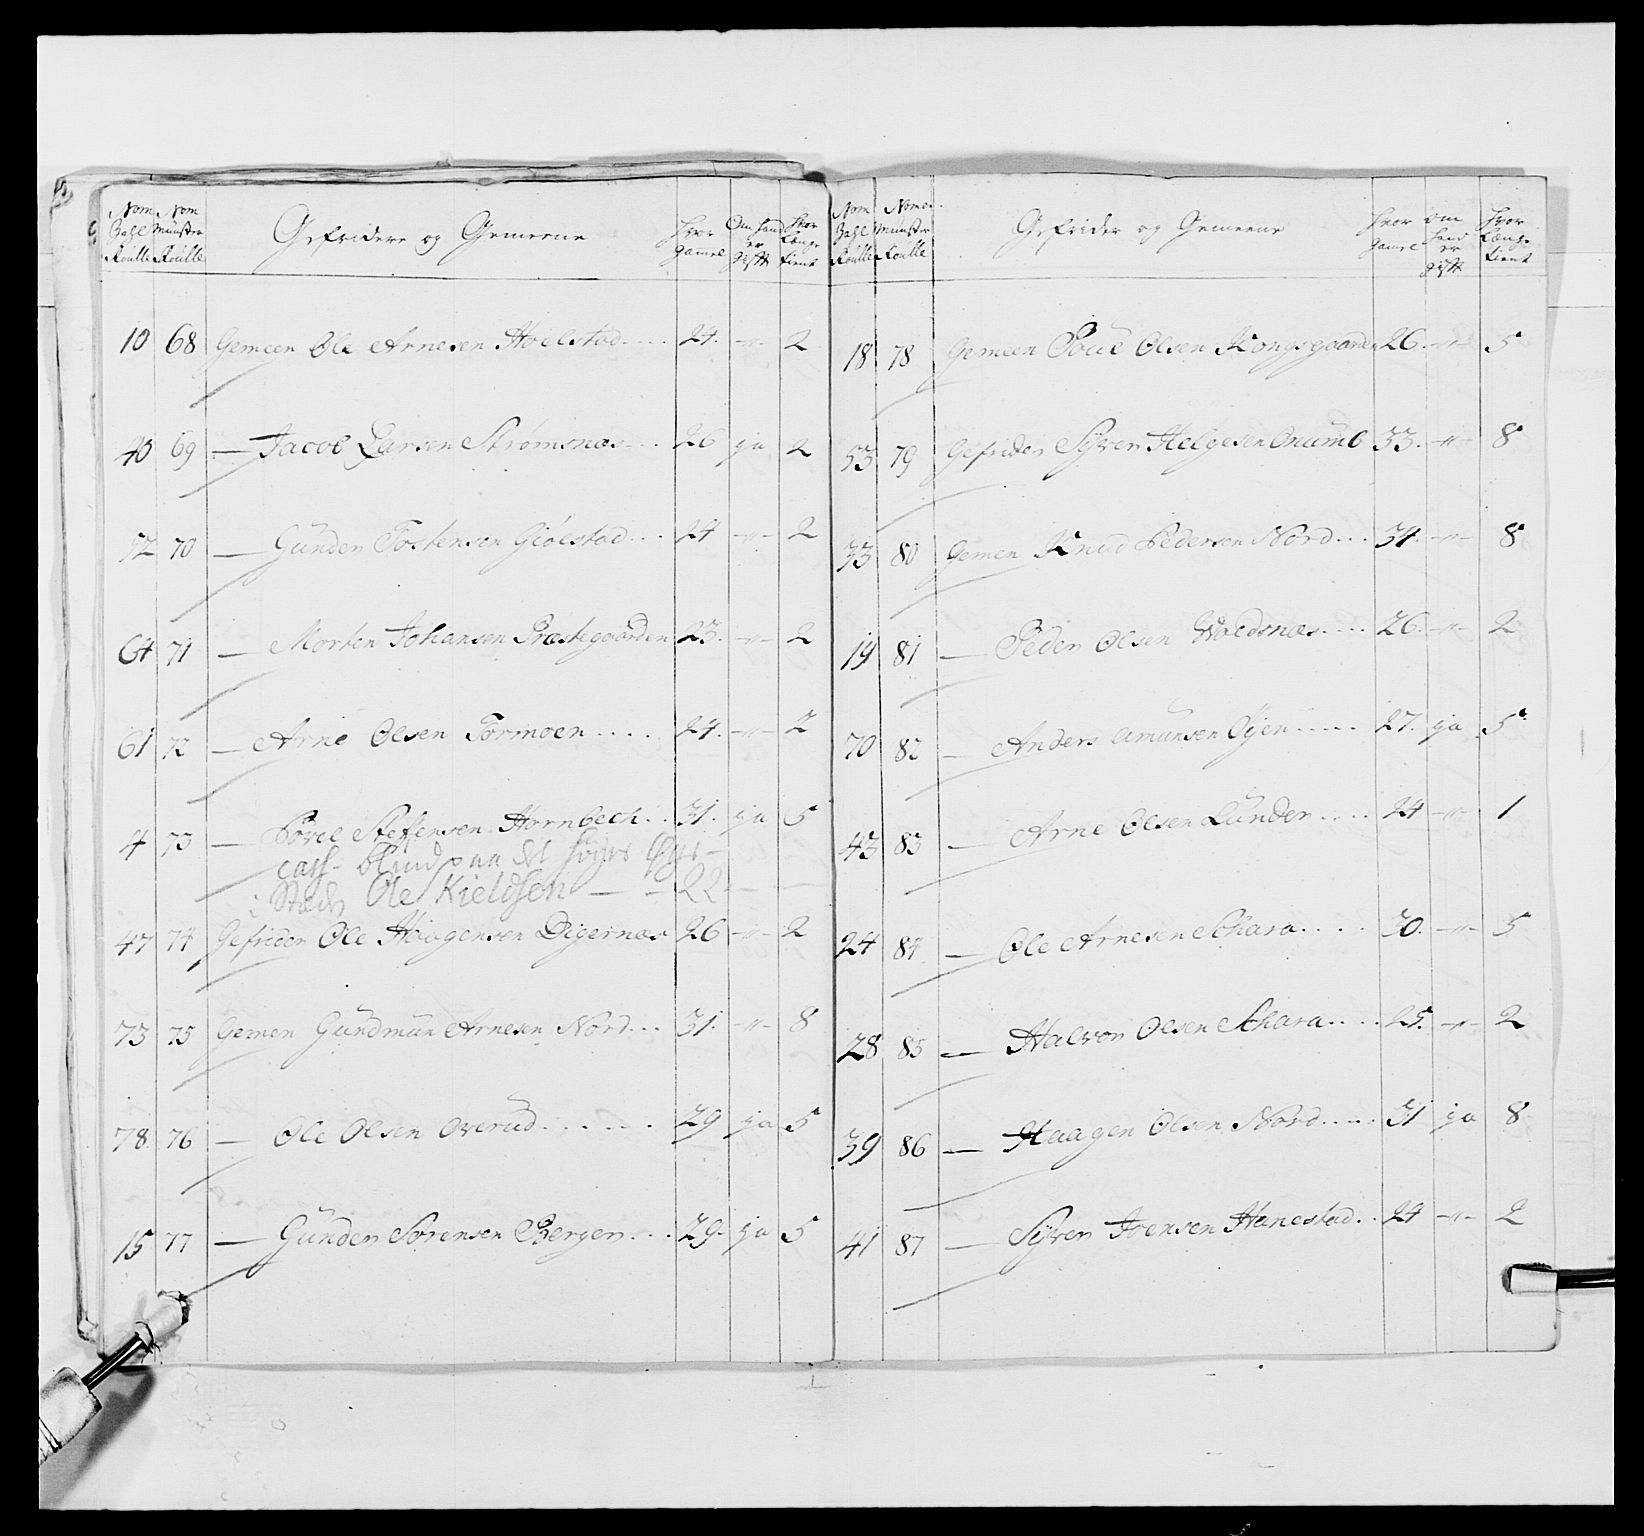 Nom Bahl Roulle | Nom Munster Roulle | Gefridere og Gemeene | hvor gamel | Om hand er gift | hvor Længe tient
10 68 Gemeen Ole Arnesen Hvelstad.... 24. -"- 2
40 69 — Jacob Larsen Strømsnæs... 26 ja 2
52 70 — Gunder Tostensen Giølstad... 24 -"- 2
64 71 — Morten Johansen Præstegaarden 23. -"- 2
61 72 — Arne Olsen Tormoen..... 24. -"- 2
4 73 — Povel Steffensen Hornbech.. 31. ja 5
cass. blind paa det høyre Øye –
i Stæde Ole Kieldsen — – 22 – —
47 74 Gefrider Ole Haagensen Digernæs 26 -"- 2
73 75 Gemen Gundmun Arnesen Nord... 31. -"- 8
78 76 — Ole Olsen Overud...... 29 ja 5
15 77 — Gunder Sørensen Bergen... 29. ja 5
Nom Bahl Roulle | Nomer Munster Roulle | Gefrider og Gemeene | hvor gamel | om hand er gift | hvor Længe tient
18 78 Gemeen Poul Olsen Kongsgaarden 26. -"- 5
53 79 Gefrider Syver Helgesen Onumb 33. -"- 8
33 80 Gemen Knud Pedersen Nord... 34. -"- 8
19 81 — Peder Olsen Woldsnæs.... 26. -"- 2
70 82 — Anders Amunsen Øjen..... 27. ja 5
43 83 — Arne Olsen Lunder.... 24 -"- 1
24 84 — Ole Arnesen Schara.... 30. -"- 5
28 85 — Halvor Olsen Schara.... 25. -"- 2
39 86 — Haagen Olsen Nord.... 31 ja 8
41 87 — Syver Joensen Hanestad.. 24 -"- 2